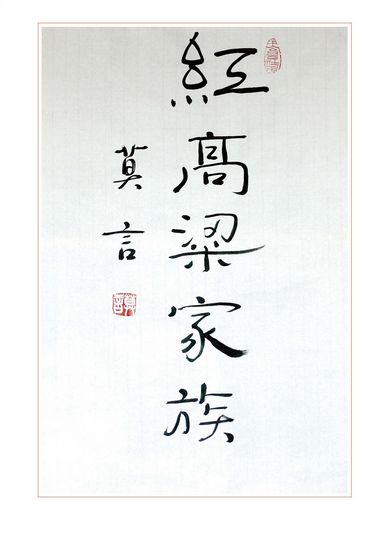 紅高粱家族
莫言